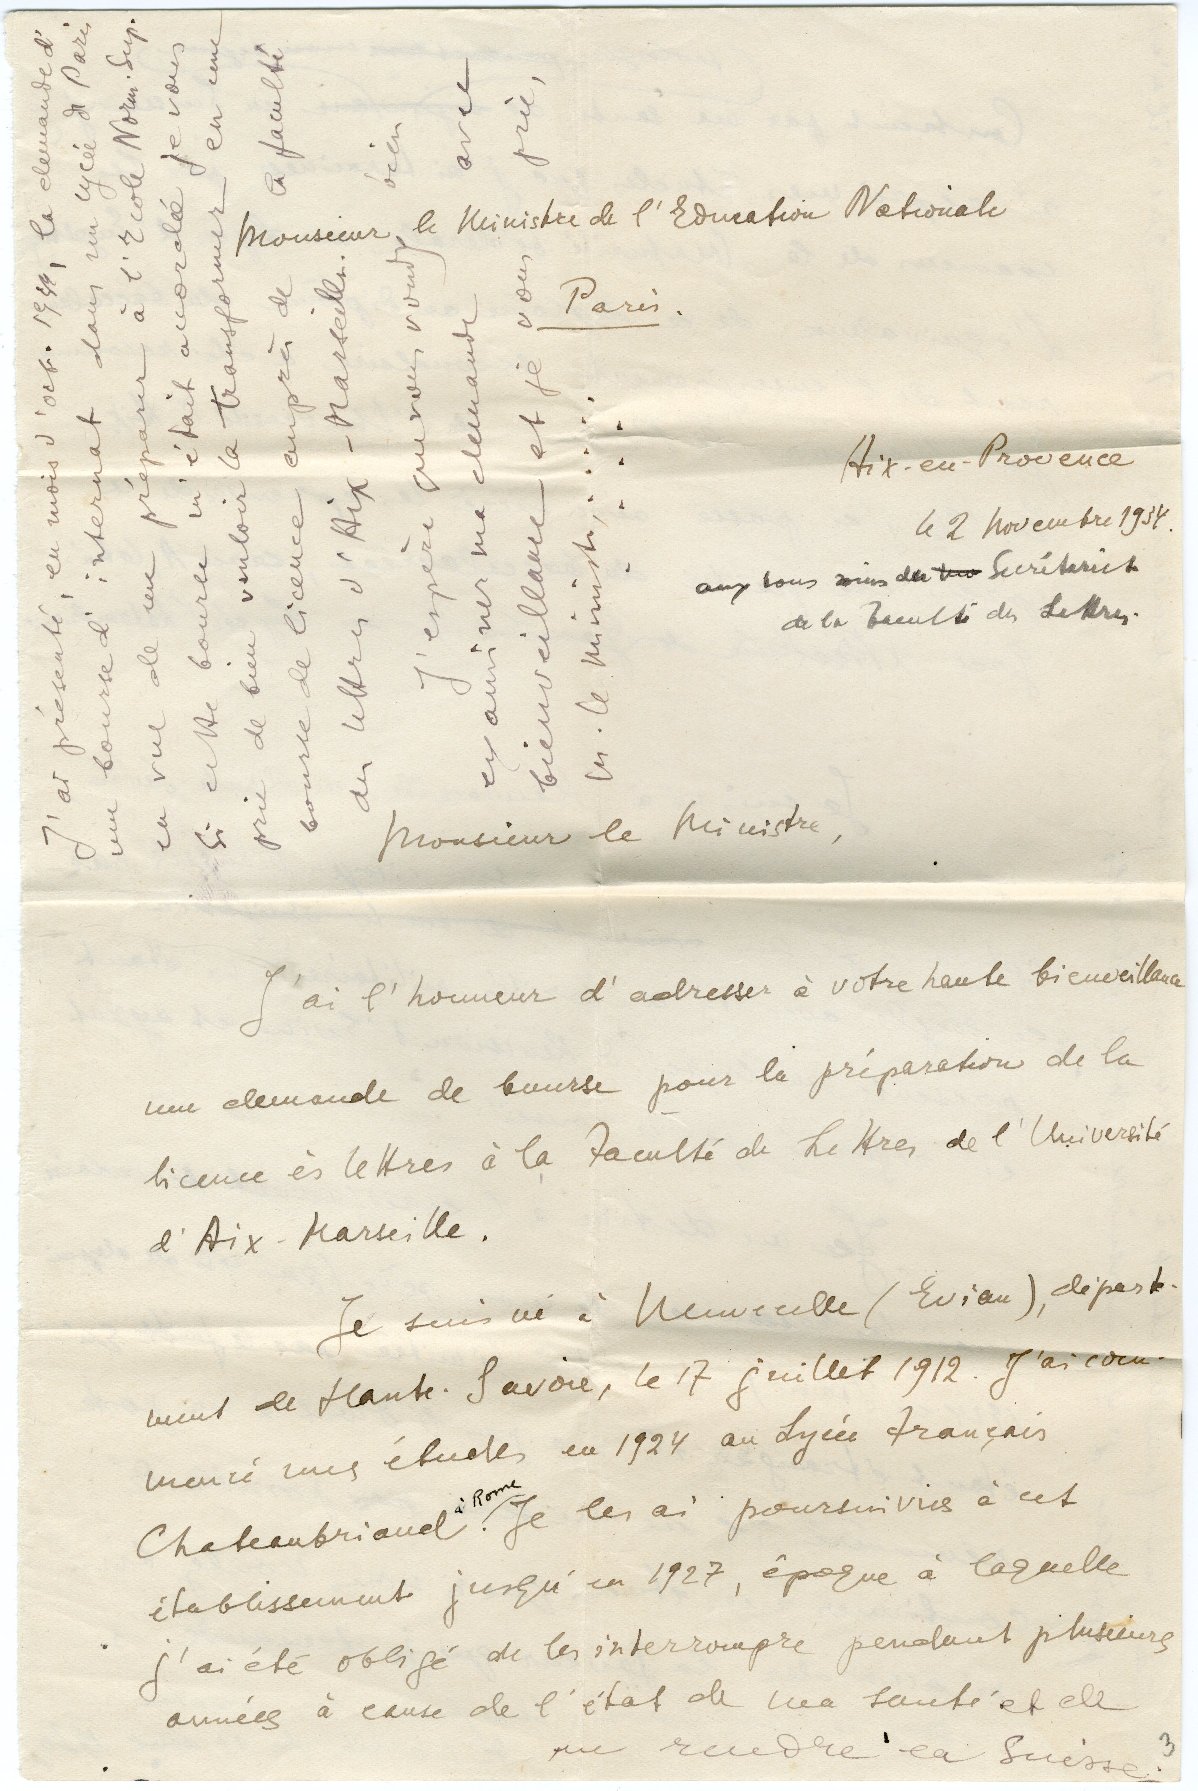 Monsieur le Ministre de l'Education Nationale
Paris.
Aix-en-Provence
le 2 Novembre 1934.
aux bons soins du Secrétariat
de la Faculté des Lettres.
Monsieur le Ministre,
J'ai l'honneur d'adresser à votre haute bienveillance
une demande de bourse pour la préparation de la
licence ès lettres à la Faculté de Lettres de l'Université
d'Aix-Marseille.
Je suis né à Neuvecelle (Evian), départe-
ment de Haute-Savoie, le 17 juillet 1912. J'ai com-
mencé mes études en 1924 au Lycée Français
Chateaubriand à Rome. Je les ai poursuivies à cet
établissement jusqu'en 1927, époque à laquelle
j'ai été obligé de les interrompre pendant plusieurs
années à cause de l'état de ma santé et de
me rendre en Suisse.
3
J'ai présenté, en mois d'oct. 1934, la demande d'
une bourse d'internat dans un lycée de Paris
en vue de me préparer à l'Ecole Norm. Sup.
Si cette bourse m'était accordée je vous
prie de bien vouloir la transformer en une
bourse de licence auprès de la faculté
des lettres d'Aix-Marseille.
J'espère que vous voudrez bien
examiner ma demande avec
bienveillance et je vous prie,
M. le Ministre, . . . .